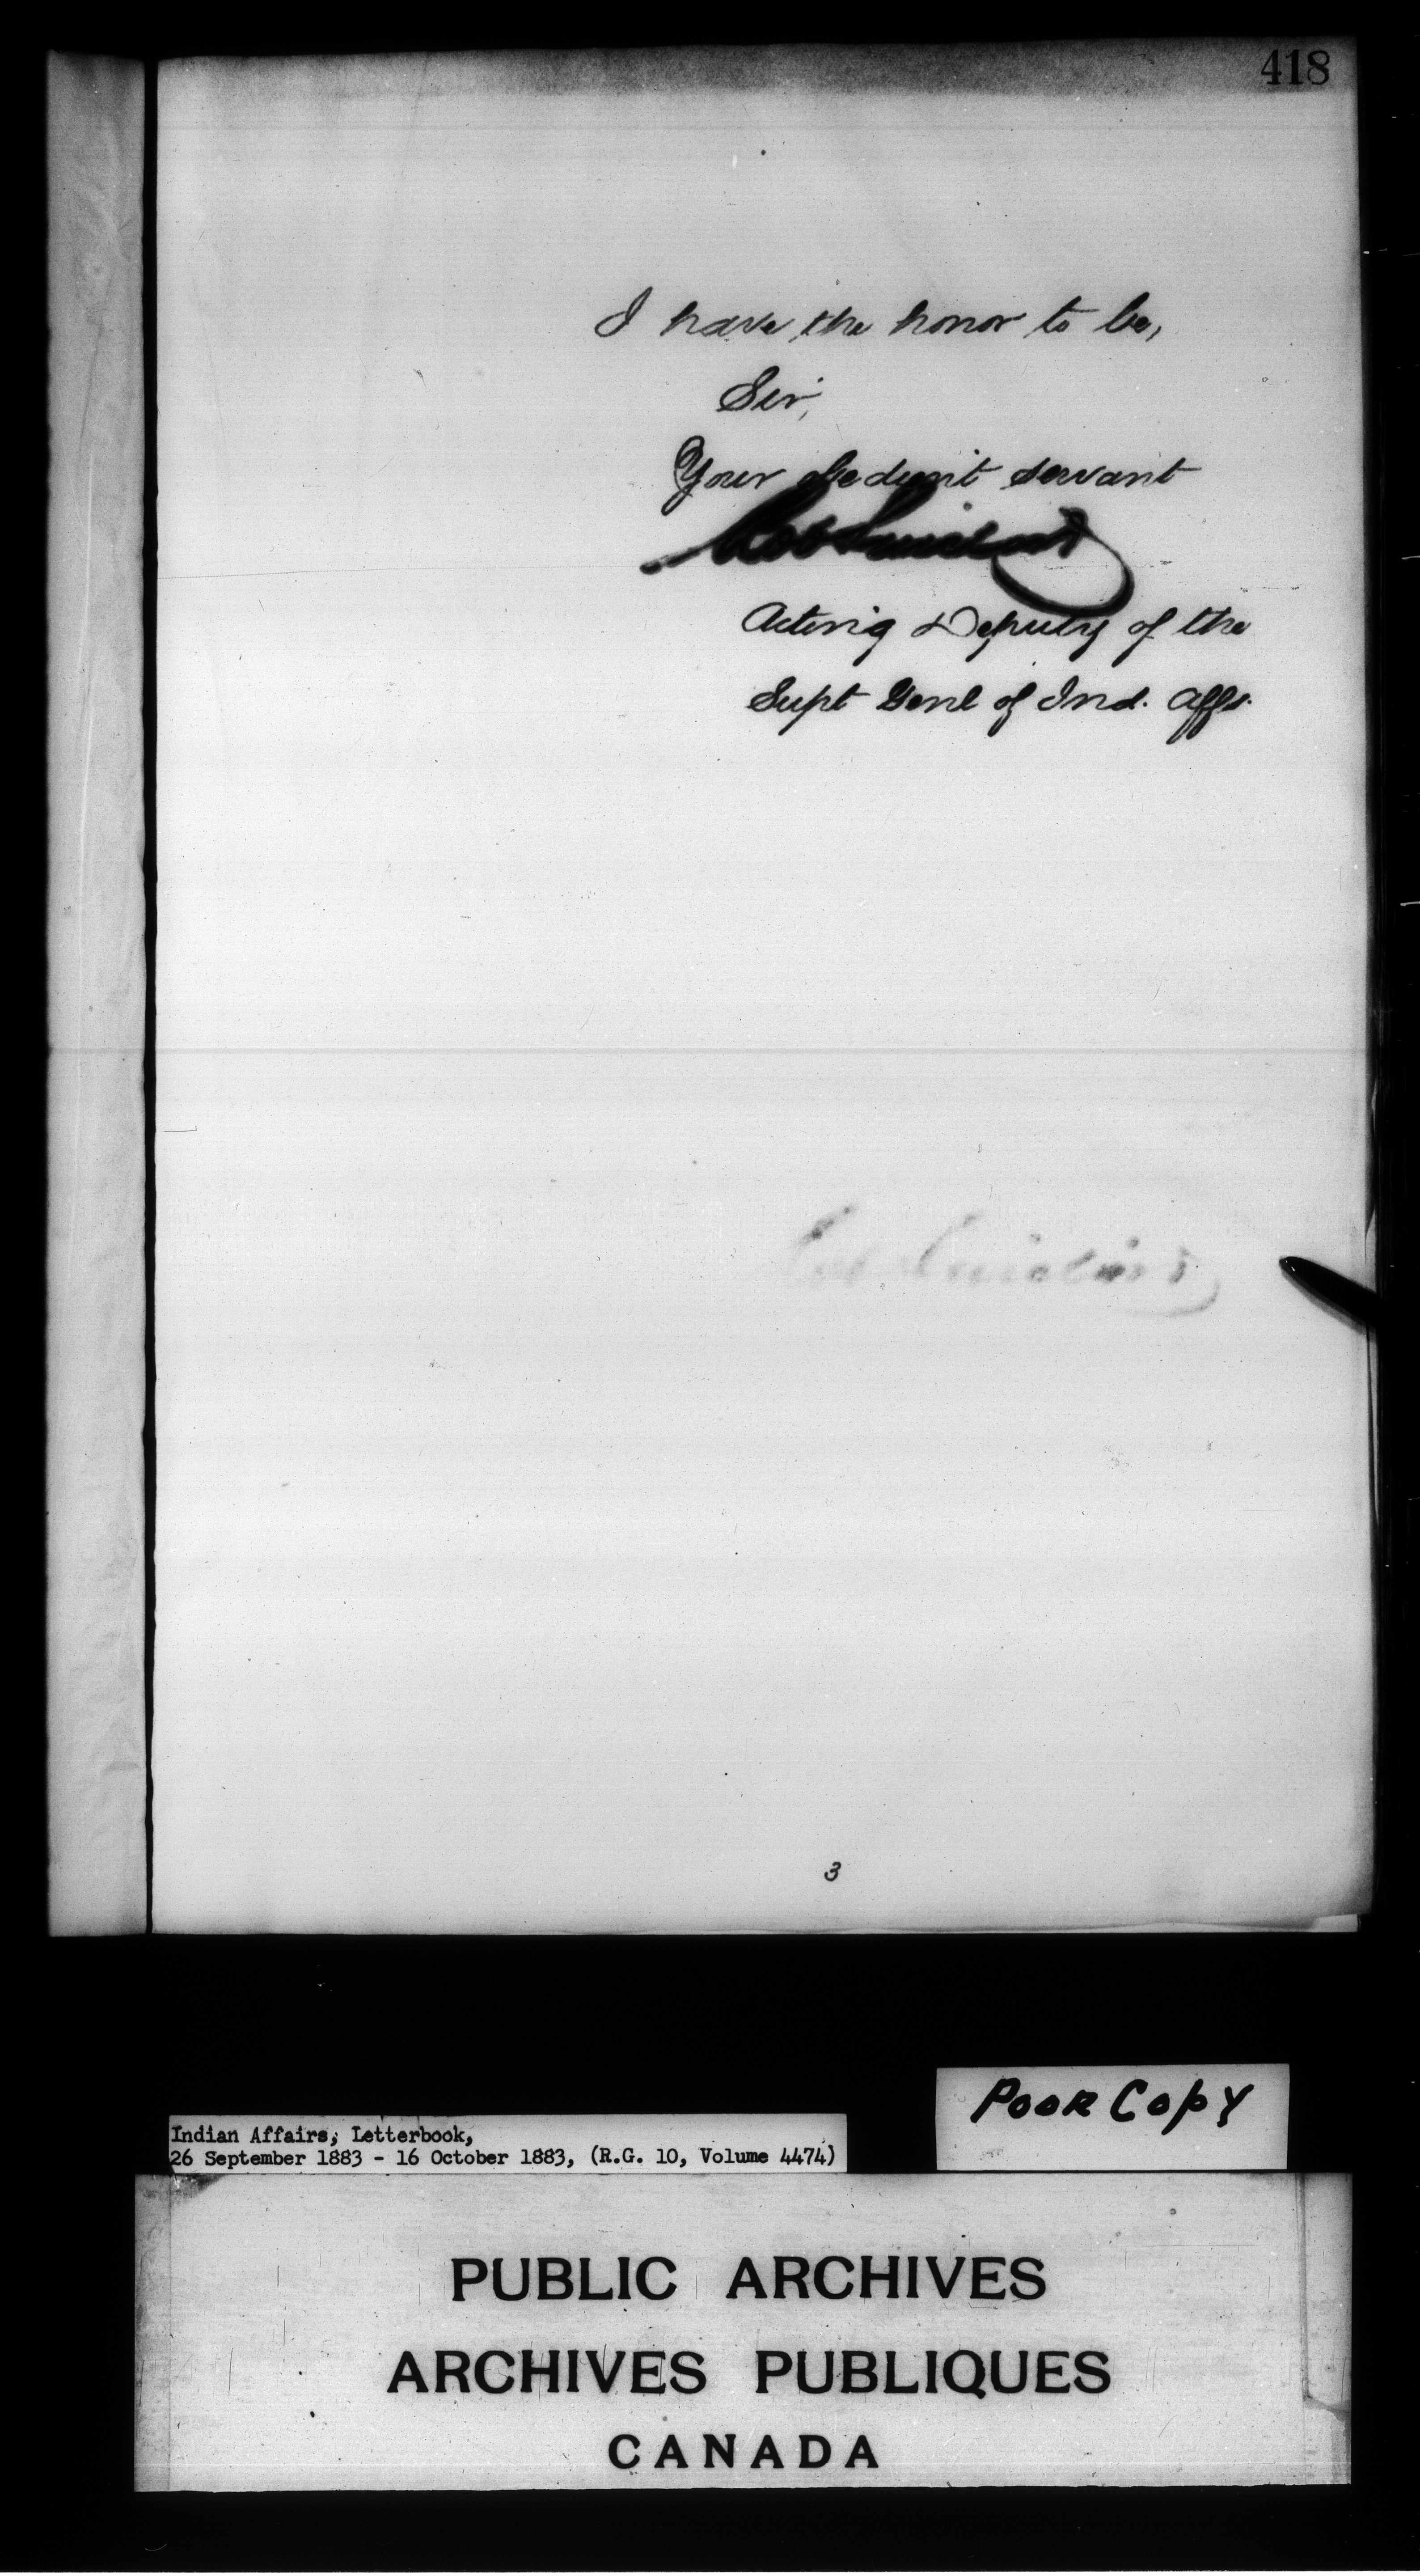 418
I have the honor to be,
Sir,
Your obedient servant
Acting Deputy of the
Supt Genl of Ind. Affs.
3
Poor Copy
Indian Affairs, Letterbook,
26 September 1883 - 16 October 1883, (R.G. 10, Volume 4474)
PUBLIC ARCHIVES
ARCHIVES PUBLIQUES
CANADA